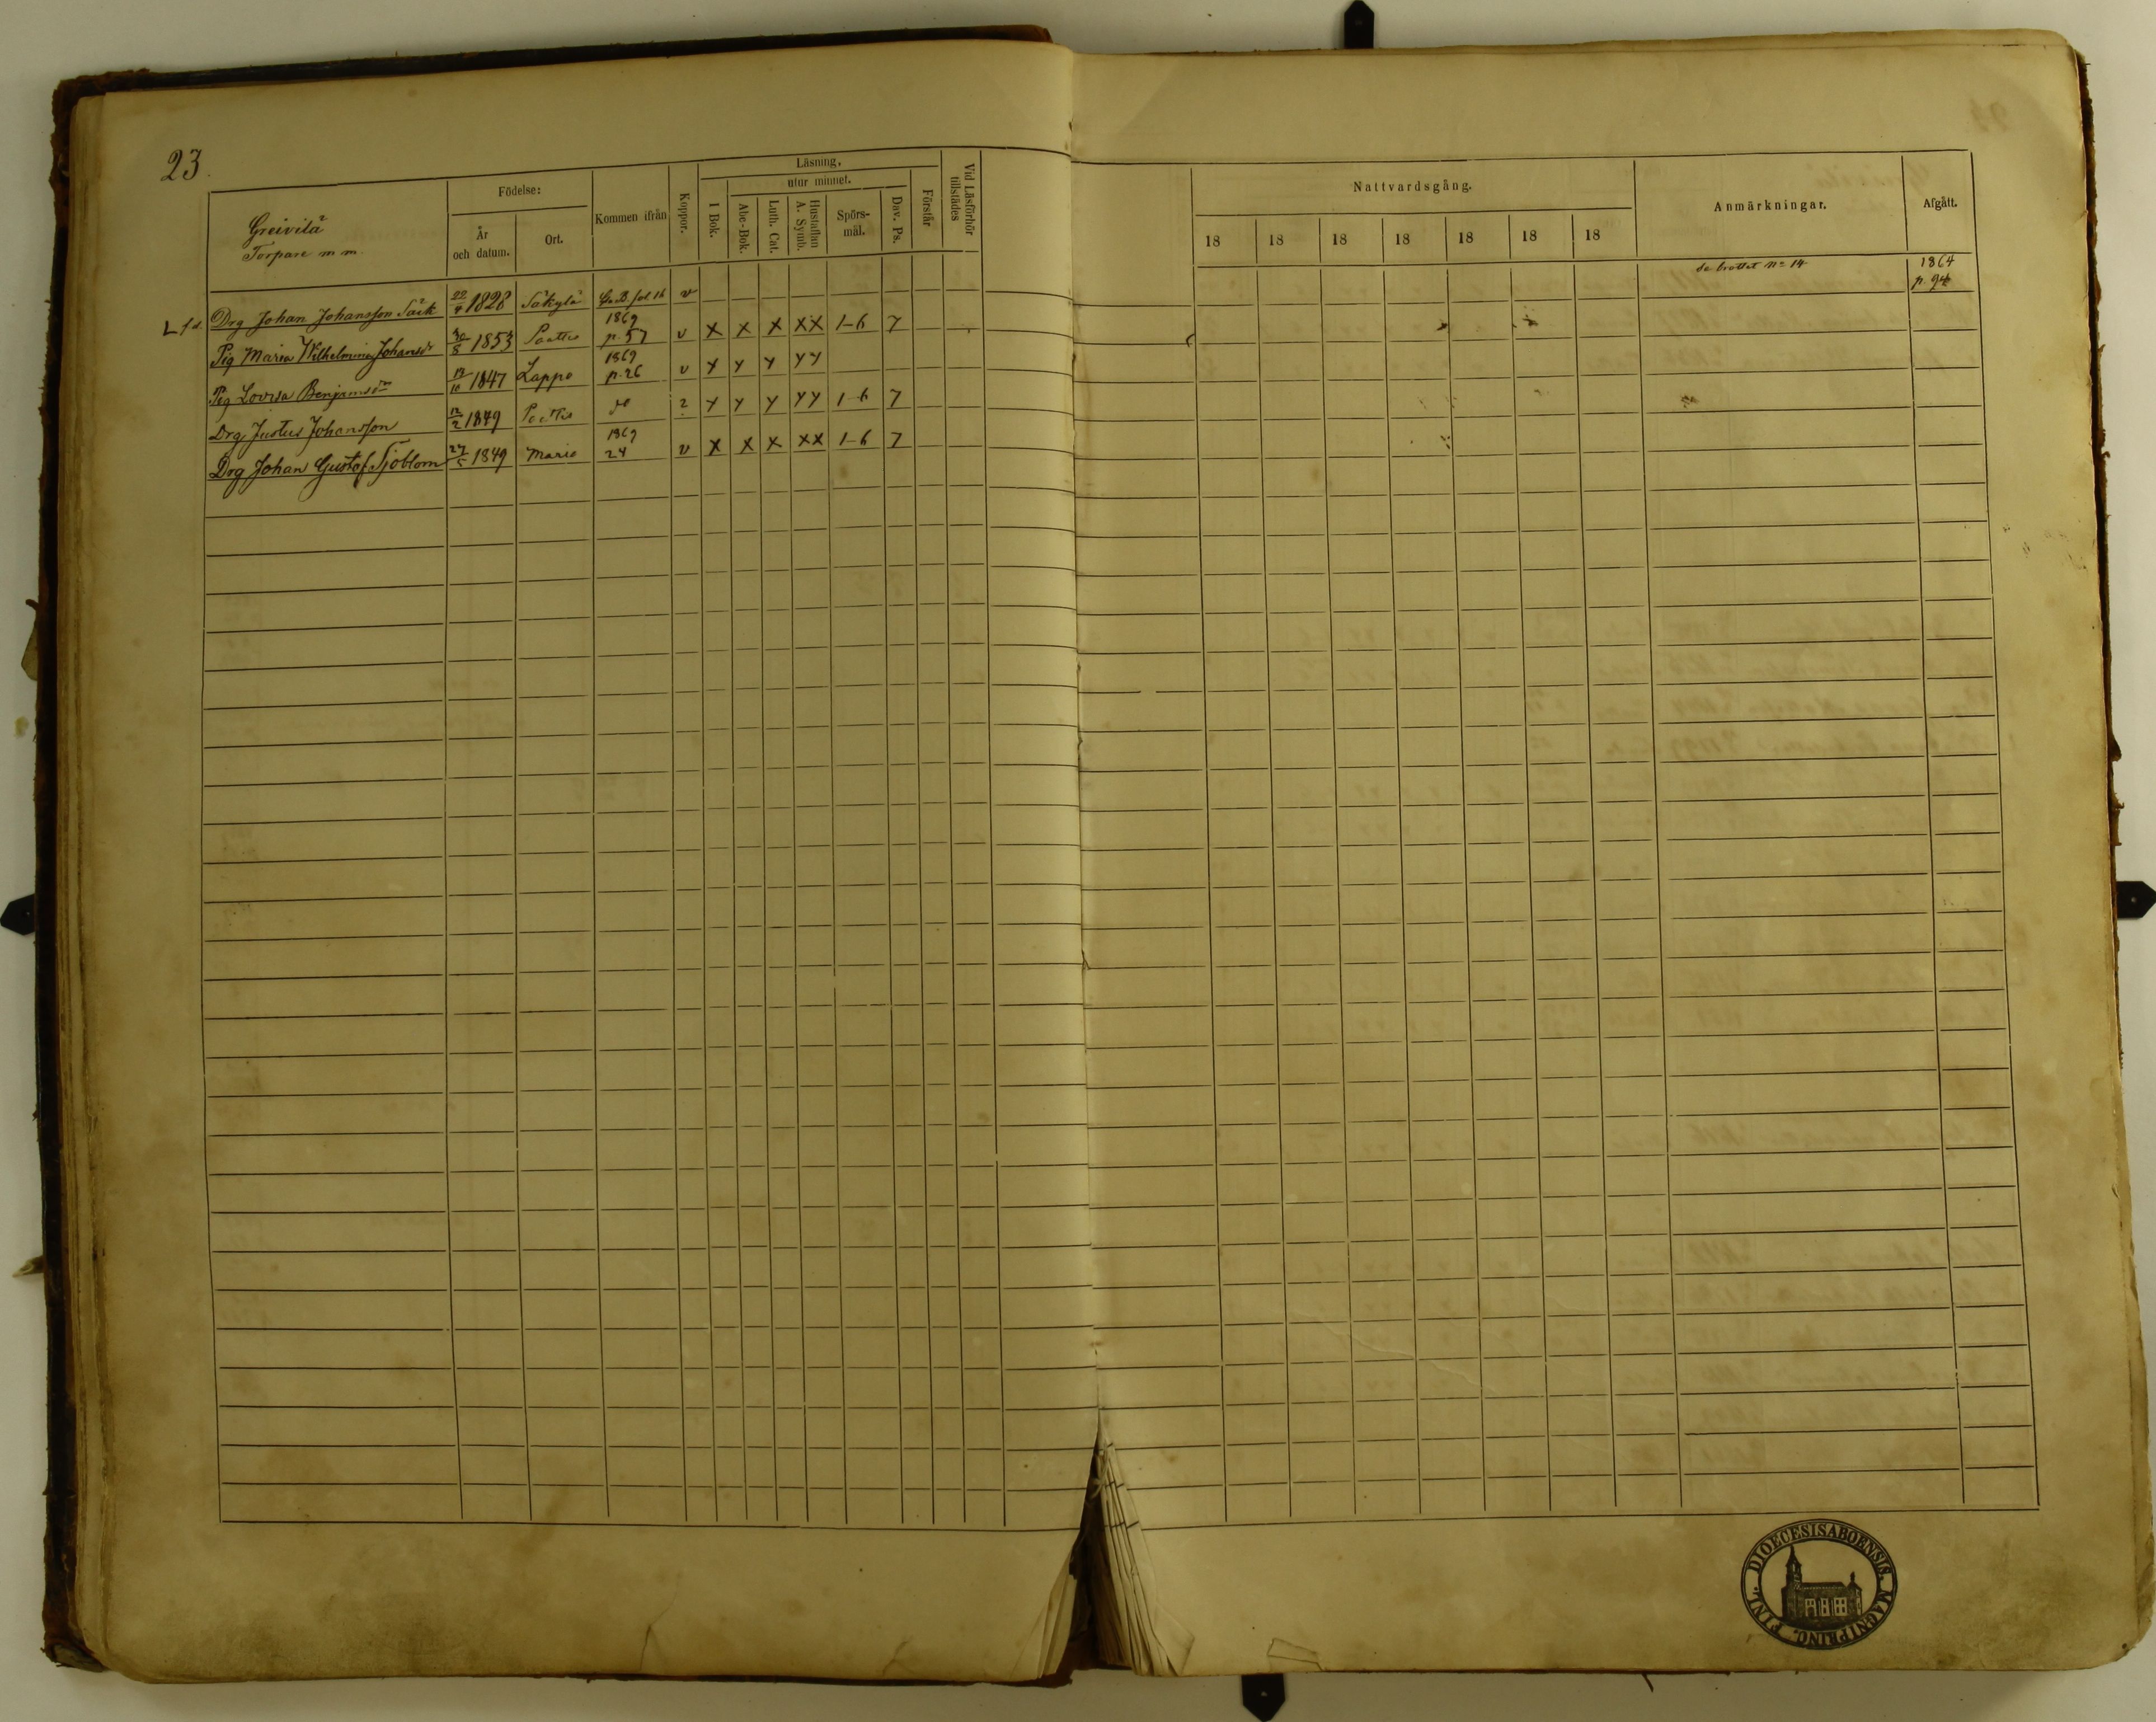 23.
Greivilä
Torpare m m.
Födelse:
År och datum.
Ort.
Kommen ifrån
Koppor.
Läsning,
utur minnet.
I Bok.
Abc-Bok.
Luth. Cat.
Hustaflan A. Symb.
Spörsmål.
Dav. Ps.
Förstår
Vid Läsförhör tillstädes
Nattvardsgång.
18 18 18 18 18 18 18
Anmärkningar.
Afgått.
Drg Johan Johansson Säik 22/4 1828 Säkylä fol 16 v se brottet No 14 1864 p. 94
Pig Maria Wilhelmina Johansdr 30/8 1853 Pöttis 1869 p. 57 v X X X XX 1-6 7
Pig Lovisa Benjamsdr 1847 Lappo 1869 p. 26 v Y Y Y YY
Drg Justus Johansson 12/2 1849 do 2 Y Y Y YY 1-6 7
Drg Johan Gustaf Sjöblom 27/5 1849 Marie 1869 24 v X X X XX 1-6 7
DIOECESIS ABOENSIS. MAGNI PRINC. FINL.